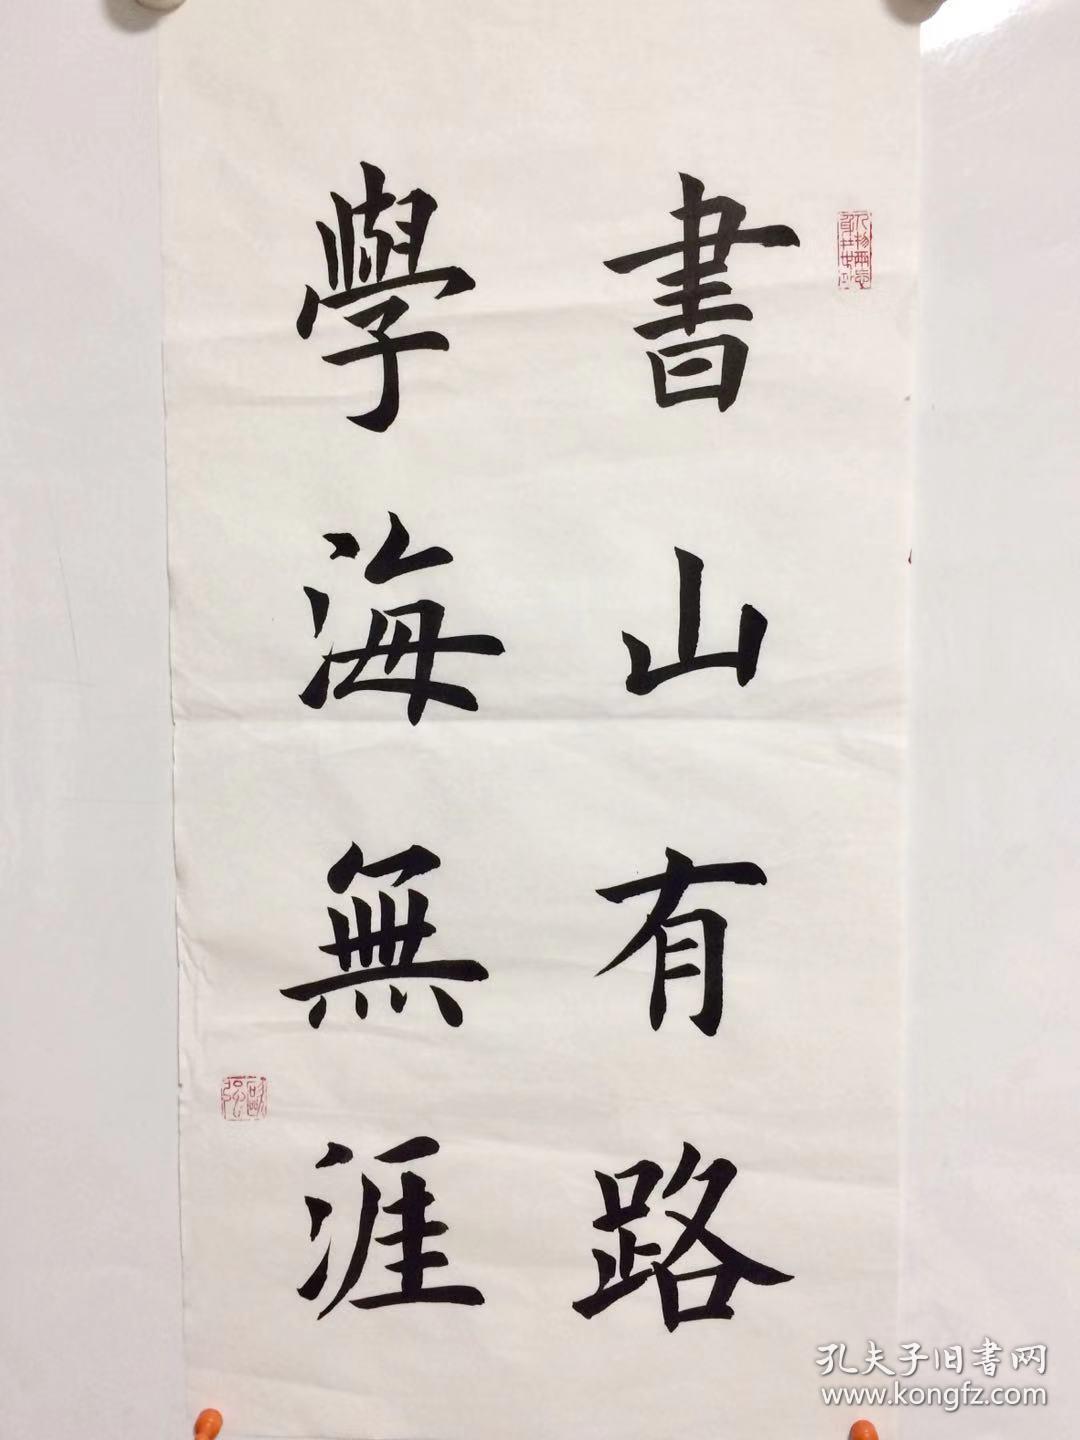 書山有路
學海無涯
孔夫子旧書网
www.kongfz.com